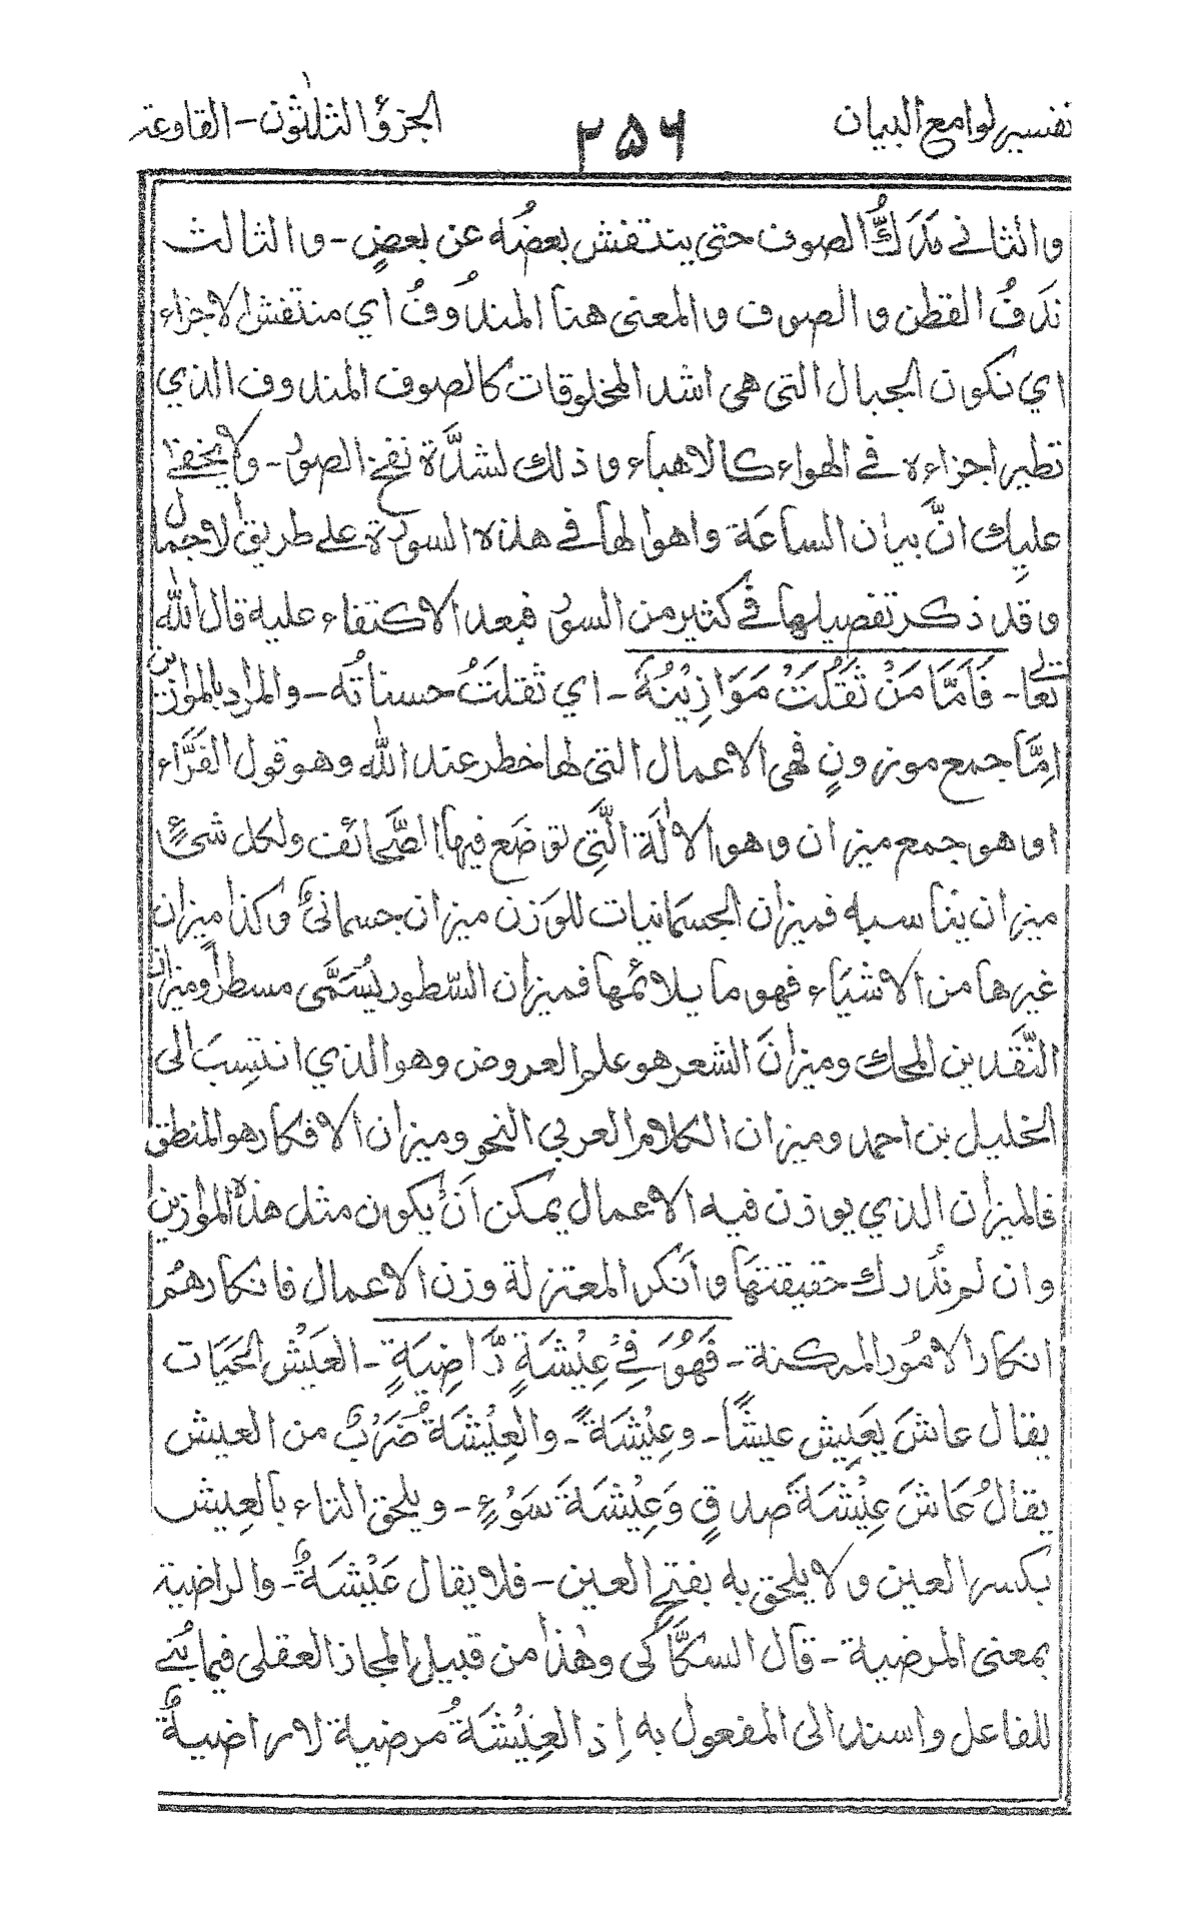 تفسير لوامع البيان ٢٥٦ الجزؤ الثلٰثون - القاوعة
والثاني مَدَركُّ الصوف حتى يتنفش بعضُه عن بعضٍ - و الثالث
نَدفُ القطن و الصوف و المعنى هنا المندُوفُ اي منتفش الاجزاء
اي تكون الجبال التى هي اشد المخلوقات كالصوف المندوف الذي
تطير اجزاءه في الهواء كالاهباء و ذلك لشدَّة نفخ الصور - ولا يخفىٰ
عليك انَّ بيان الساعَة واهوالها في هذه السورة على طريق الاجمال
و قد ذكر تفصيلها في كثير من السور فبعد الاكتفاء عليه قال الله
تعالى - فَاَمَّا مَنْ ثَقُلَتْ مَوَازِيْنُهٗ - اي ثقلتُ حسناتُه - والمراد بالموازين
اِمَّا جمع موزونٍ فهي الاعمال التى لها خطر عند الله وهو قول الفَرَّاء
او هو جمع ميزان و هو الاٰلَة الَّتِي توضَع فيها الصَّحائف ولكل شئٍ
ميزان يناسبه فميزان الجسمانيات للوزن ميزان جسمانيٌ وكذا ميزان
غيرها من الاشيَاء فهو ما يلائمها فميزان السّطور يُسَمَّى مسطرًا وميزان
النَّقدين المحك وميزانَ الشعر هو علم العروض وهو الذي انتسِبَ الى
الخليل بن احمد وميزان الكلام العربي النحو وميزان الافكار هو المنطق
فالميزان الذي يوزن فيه الاعمال يمكن اَنْ يكون مثل هذه الموازين
وان لم نُدرك حقيقتها و اَنكر المعتزلة وزن الاعمال فانكارهم
انكار الامُور الممكنة - فَهُوَ فِيْ عِيْشَةٍ رَّاضِيَةٍ - العَيْش الحَيَات
يقال عاشَ يَعِيش عيشًا - وعِيْشَةً - والعِيْشَة ضَرْبٌ من العيش
يقالُ عَاشَ عِيْشَةَ صدقٍ وَعِيْشَةَ سَوْءٍ - ويلحق التاء بالعِيش
بكسر العين ولا يلحق به بفتح العين - فلا يقال عَيْشَةٌ - والراضية
بمعنى المرضية - قال السكَّاكي وهٰذا من قبيل المجاز العقلى فيما بُني
للفاعل واسند الى المفعول به اِذ العِيْشَةُ مرضية لا راضيةٌ